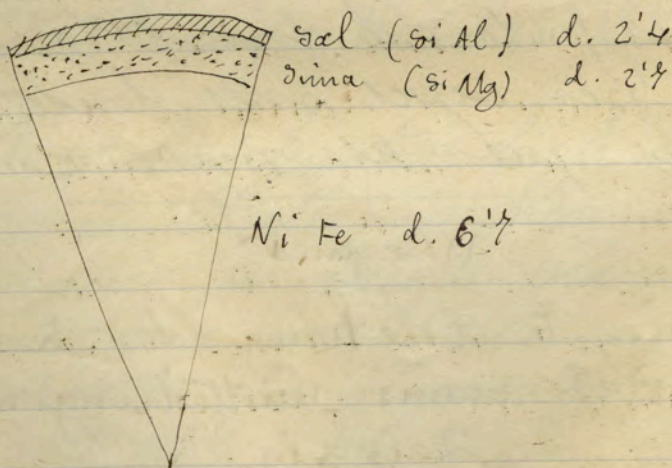 Sal (Si Al) d. 2'4
Sima (Si Mg) d. 2'7
Ni Fe d. 6'7